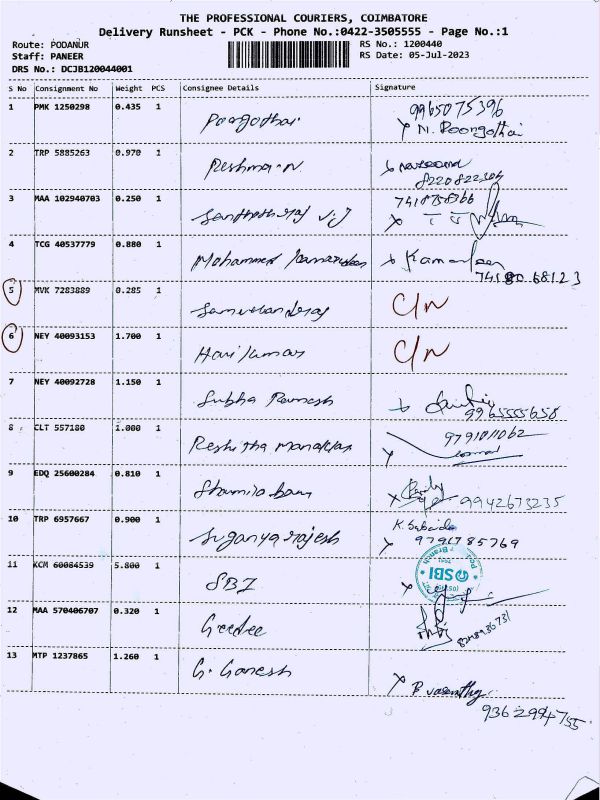 THE PROFESSIONAL COURIERS, COIMBATORE
Delivery Runsheet - PCK - Phone No.:0422-3505555 - Page No.:1
Route: PODANUR RS No.: 1200440
Staff: PANEER RS Date: 05-Jul-2023
DRS No.: DCJB120044001
S No Consignment No Weight PCS Consignee Details Signature
1 PMK 1250298 0.435 1 Poongothai 9965075396
N. Poongothai
2 TRP 5885263 0.970 1 Reshma.N
8220822304
3 MAA 102940703 0.250 1 Santhosh raj V.J 7418758766
4 TCG 40537779 0.880 1 Mohammed Kamarudeen Kamardeen
74180 68123
5 MVK 7283889 0.285 1 C/N
6 NEY 40093153 1.700 1 Hari kumar C/N
7 NEY 40092728 1.150 1 Subha Ramesh
9965555658
8 CLT 557180 1.000 1 Reshitha 9791011062
9 EDQ 25600284 0.810 1 Shamila banu 9942673235
10 TRP 6957667 0.900 1 Suganya rajesh K. Subaida
9791785769
11 KCM 60084539 5.800 1 SBI SBI
12 MAA 570406707 0.320 1 Geetee
13 MTP 1237865 1.260 1 G. Ganesh
P vasanthy
9362994755